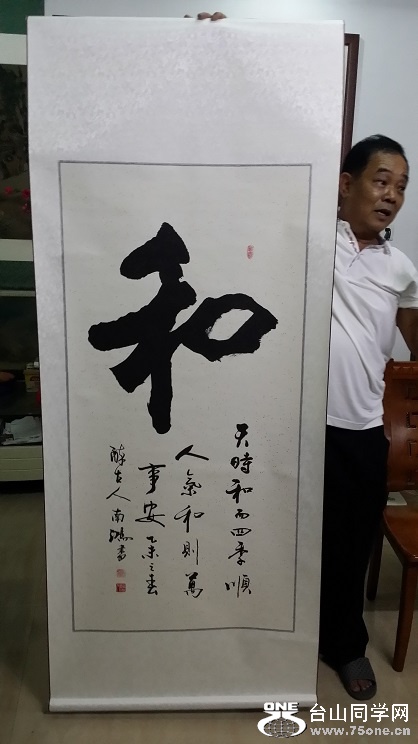 和
天時和而四季順
人氣和則萬
事安乙未之春
醉古人南鴻書
ONE
台山同学网
www.75one.cn